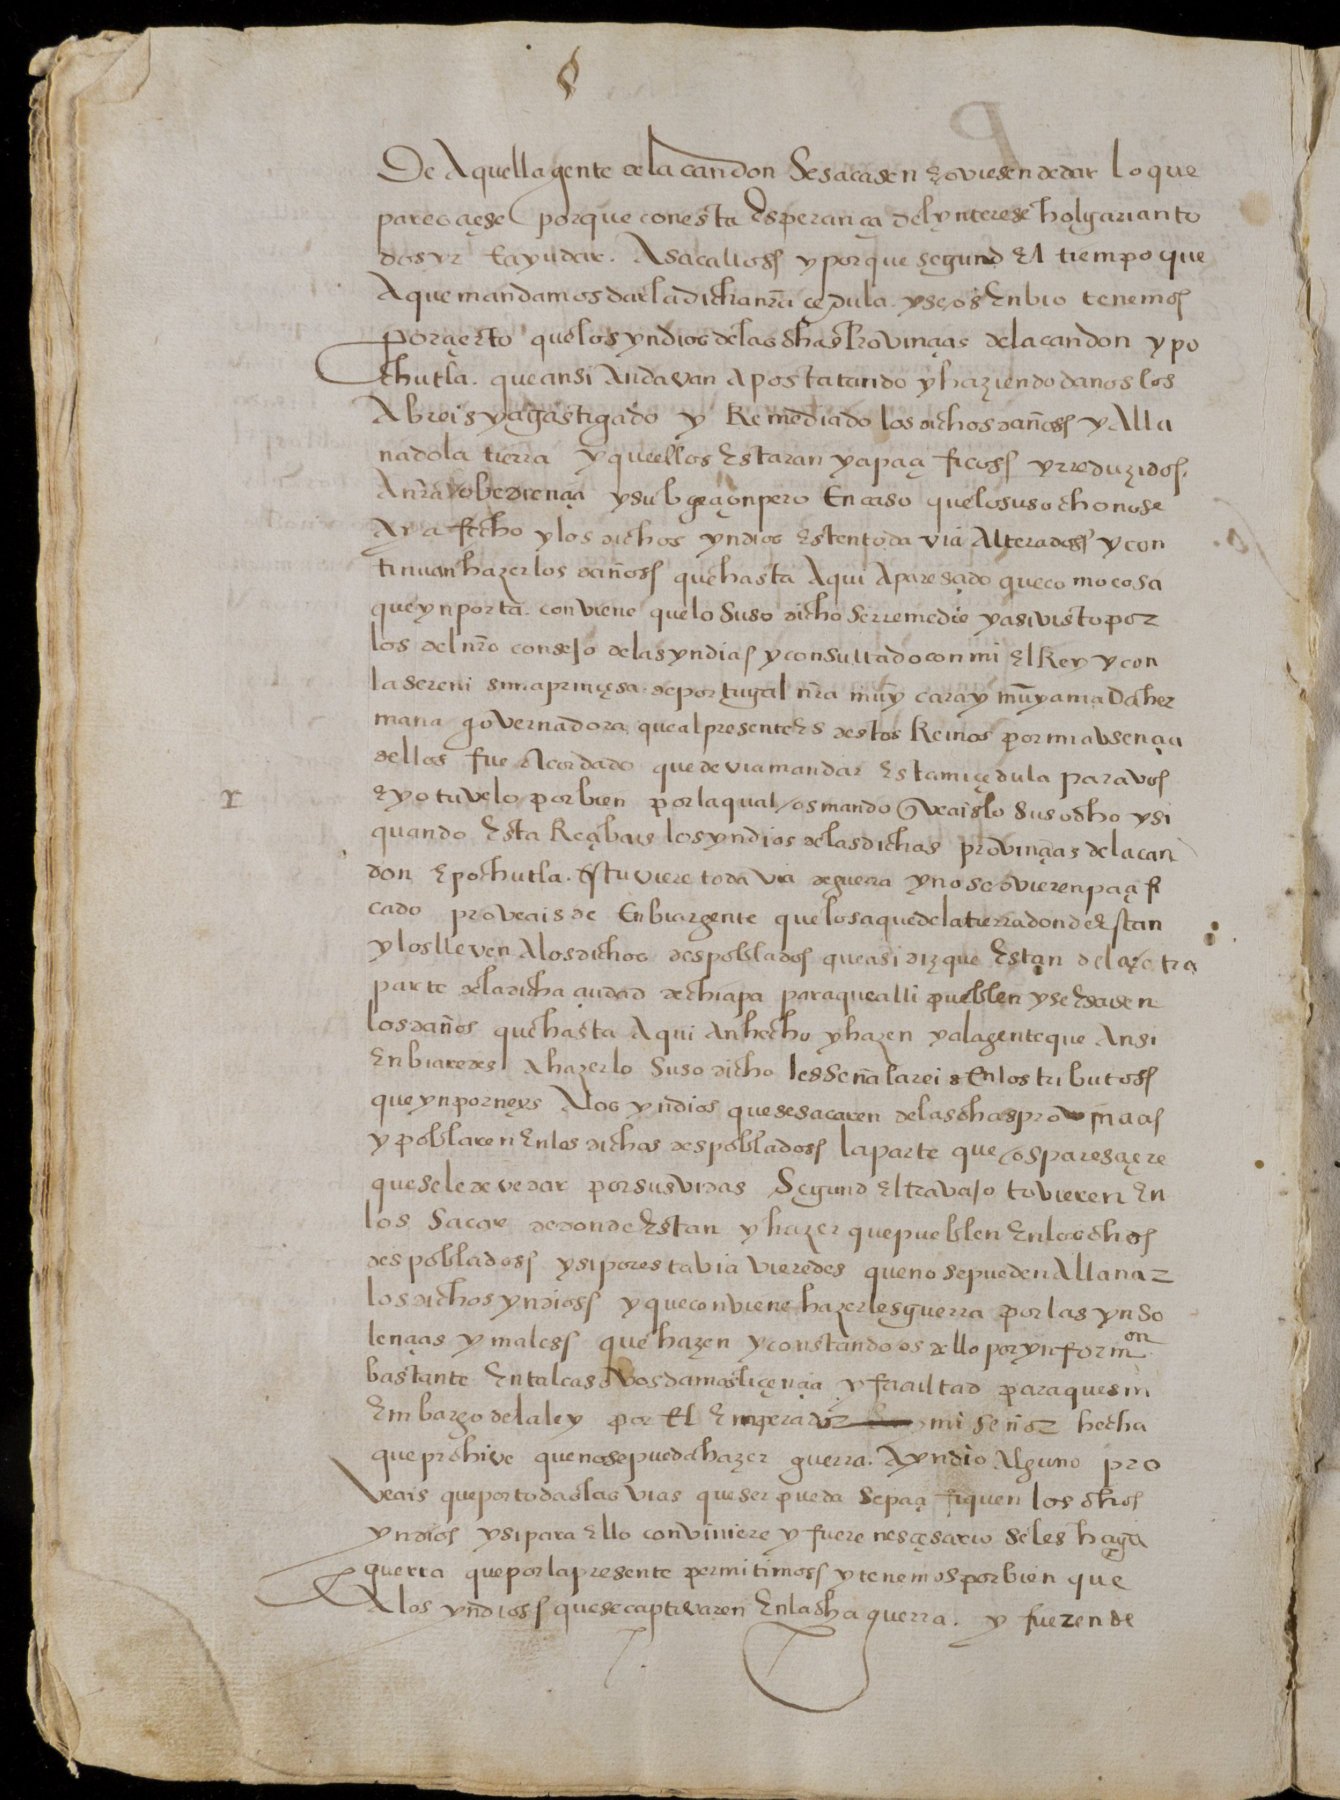 De Aquella gente de lacandon Se sacasen E oviesen de dar lo que
paresciese porque con esta Esperança del ynterese holgarian to
dos yr E ayudar. A sacallos y porque segund El tiempo que
A que mandamos dar la dicha nra cedula. y se os Enbio tenemos
por çierto que los yndios de las dhas Provinçias de lacandon y po
chutla. que ansi Andavan Apostatando y haziendo daños los
Abreis ya castigado y Remediado los dichos daños y Alla
nado la tierra y que ellos Estaran ya paçificos y rreduzidos.
A nra obediençia y subgeçion pero En caso que lo suso dho no se
Aya fecho y los dichos yndios Esten toda via Alterados y con
tinuan hazer los daños que hasta Aqui A paresçido que como cosa
que ynporta. conviene que lo Suso dicho se rremedie y asi visto por
los del nro consejo de las yndias y consultado con mi El Rey y con
la serenisima prinçesa. de portugal nra muy cara y muy amada her
mana governadora que al presente Es destos Reinos por mi absençia
dellos fue Acordado que devia mandar Esta mi çedula para vos
E yo tuvelo por bien por la qual os mando que veais lo Suso dho y si
quando Esta Reçibais los yndios de las dichas provinçias de lacan
don E pochutla. Estuviere toda via de guerra y no se ovieren paçifi
cado proveais de Enbiar gente que los aque de la tierra donde Estan
y los lleven A los dichos despoblados que asi diz que Estan de la otra
parte de la dicha çiudad de chiapa para que alli pueblen y se Escusen
los daños que hasta Aqui An hecho y hazen y a la gente que Ansi
Enbiaredes A hazer lo Suso dicho les Señalareis En los tributos
que ynporneys A los yndios que se sacaren de las dhas provinçias
y poblaren En los dichos despoblados la parte que os paresçiere
que se le deve dar por sus vidas Segund El travajo tovieren En
los Sacar de donde Estan y hazer que pueblen En los dhos
despoblados y si por esta via vieredes que no se pueden Allanar
los dichos yndios y que conviene hazerles guerra por las ynso
lençias y males que hazen y constando os dello por ynformon
bastante En tal caso Vos damos liçençia y facultad para que sin
Embargo de la ley por El Emperador mi Señor hecha
que prohive que no se pueda hazer guerra. A yndio Alguno pro
veais que por todas las vias que ser pueda Se paçifiquen los dhos
yndios y si para Ello conviniere y fuere nesçesario se les haga
guerra que por la presente permitimos y tenemos por bien que
A los yndios que se captivaren En la dha guerra. y fueren de